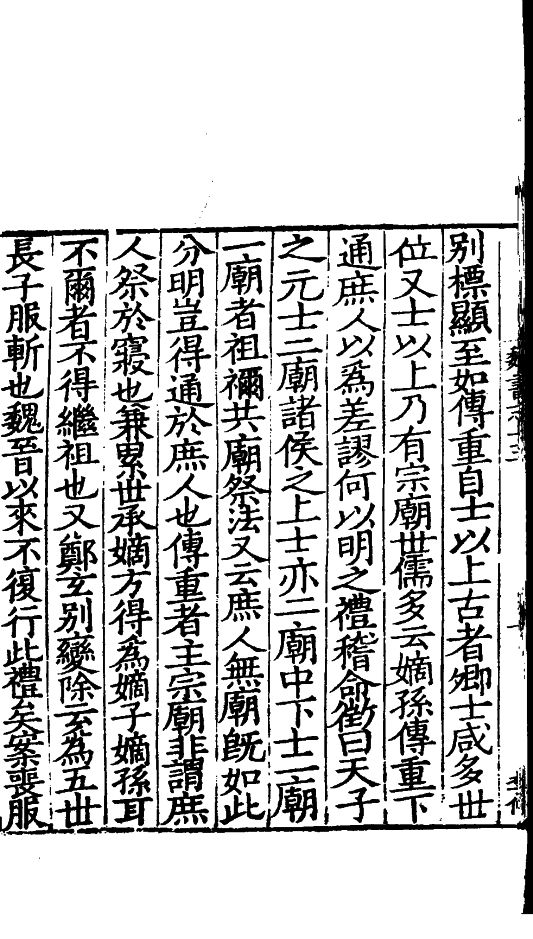 魏書志十三
别標顯至如傳重自士以上古者卿士咸多世
位又士以上乃有宗廟世儒多云嫡孫傳重下
通庶人以爲差謬何以明之禮稽命徵曰天子
之元士二廟諸侯之上士亦二廟中下士一廟
一廟者祖禰共廟祭法又云庶人無廟旣如此
分明豈得通於庶人也傳重者主宗廟非謂庶
人祭於寢也兼累世承嫡方得爲嫡子嫡孫耳
不爾者不得繼祖也又鄭玄别變除云為五世
長子服斬也魏晉以來不復行此禮矣案喪服